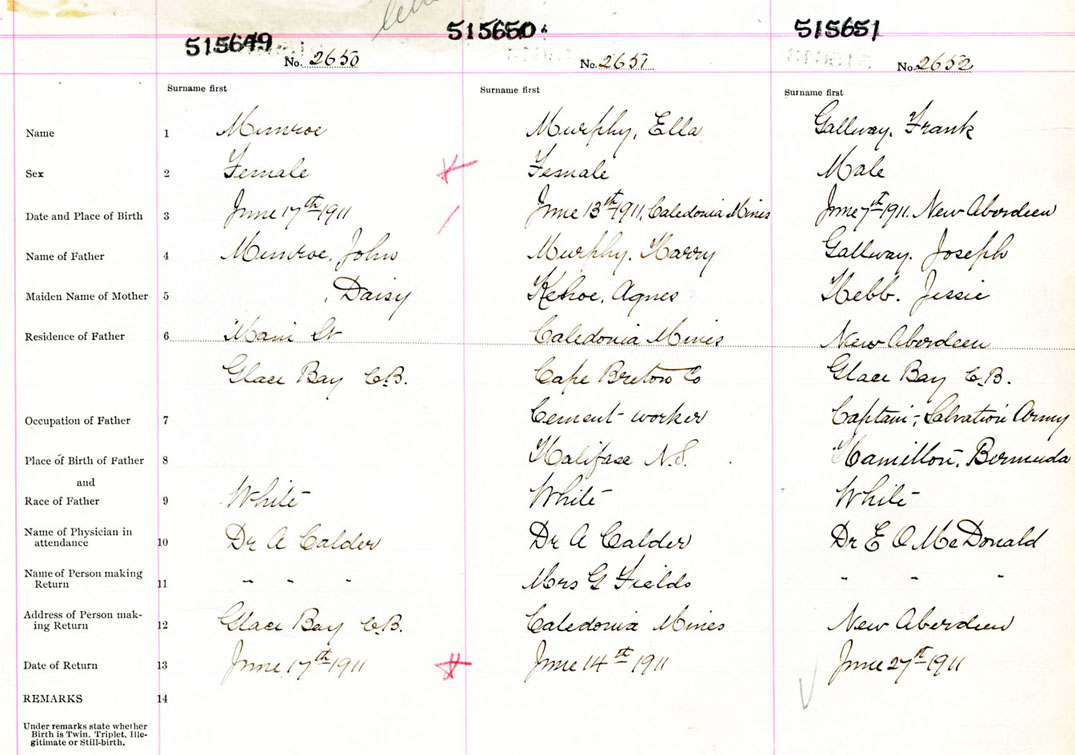 515649 515650. 515651
No. 2650 No. 2651 No. 2652
Surname first Surname first Surname first
Name 1 Munroe Murphy, Ella Gallway, Frank
Sex 2 Female Female Male
Date and Place of Birth 3 June 17th 1911 June 13th 1911, Caledonia Mines June 7th 1911, New Aberdeen
Name of Father 4 Munroe, John Murphy, Harry Gallway, Joseph
Maiden Name of Mother 5 , Daisy Kehoe, Agnes Hebb, Jessie
Residence of Father 6 Main St Caledonia Mines New Aberdeen
Glace Bay C.B. Cape Breton Co Glace Bay C.B.
Occupation of Father 7 Cement worker Captain, Salvation Army
Place of Birth of Father 8 Halifax N.S. Hamilton, Bermuda
and
Race of Father 9 White White White
Name of Physician in
attendance 10 Dr A Calder Dr A Calder Dr E O McDonald
Name of Person making
Return 11 " " " Mrs G Fields " " "
Address of Person mak-
ing Return 12 Glace Bay C.B. Caledonia Mines New Aberdeen
Date of Return 13 June 17th 1911 June 14th 1911 June 27st 1911
REMARKS 14
Under remarks state whether
Birth is Twin, Triplet, Ille-
gitimate or Still-birth.